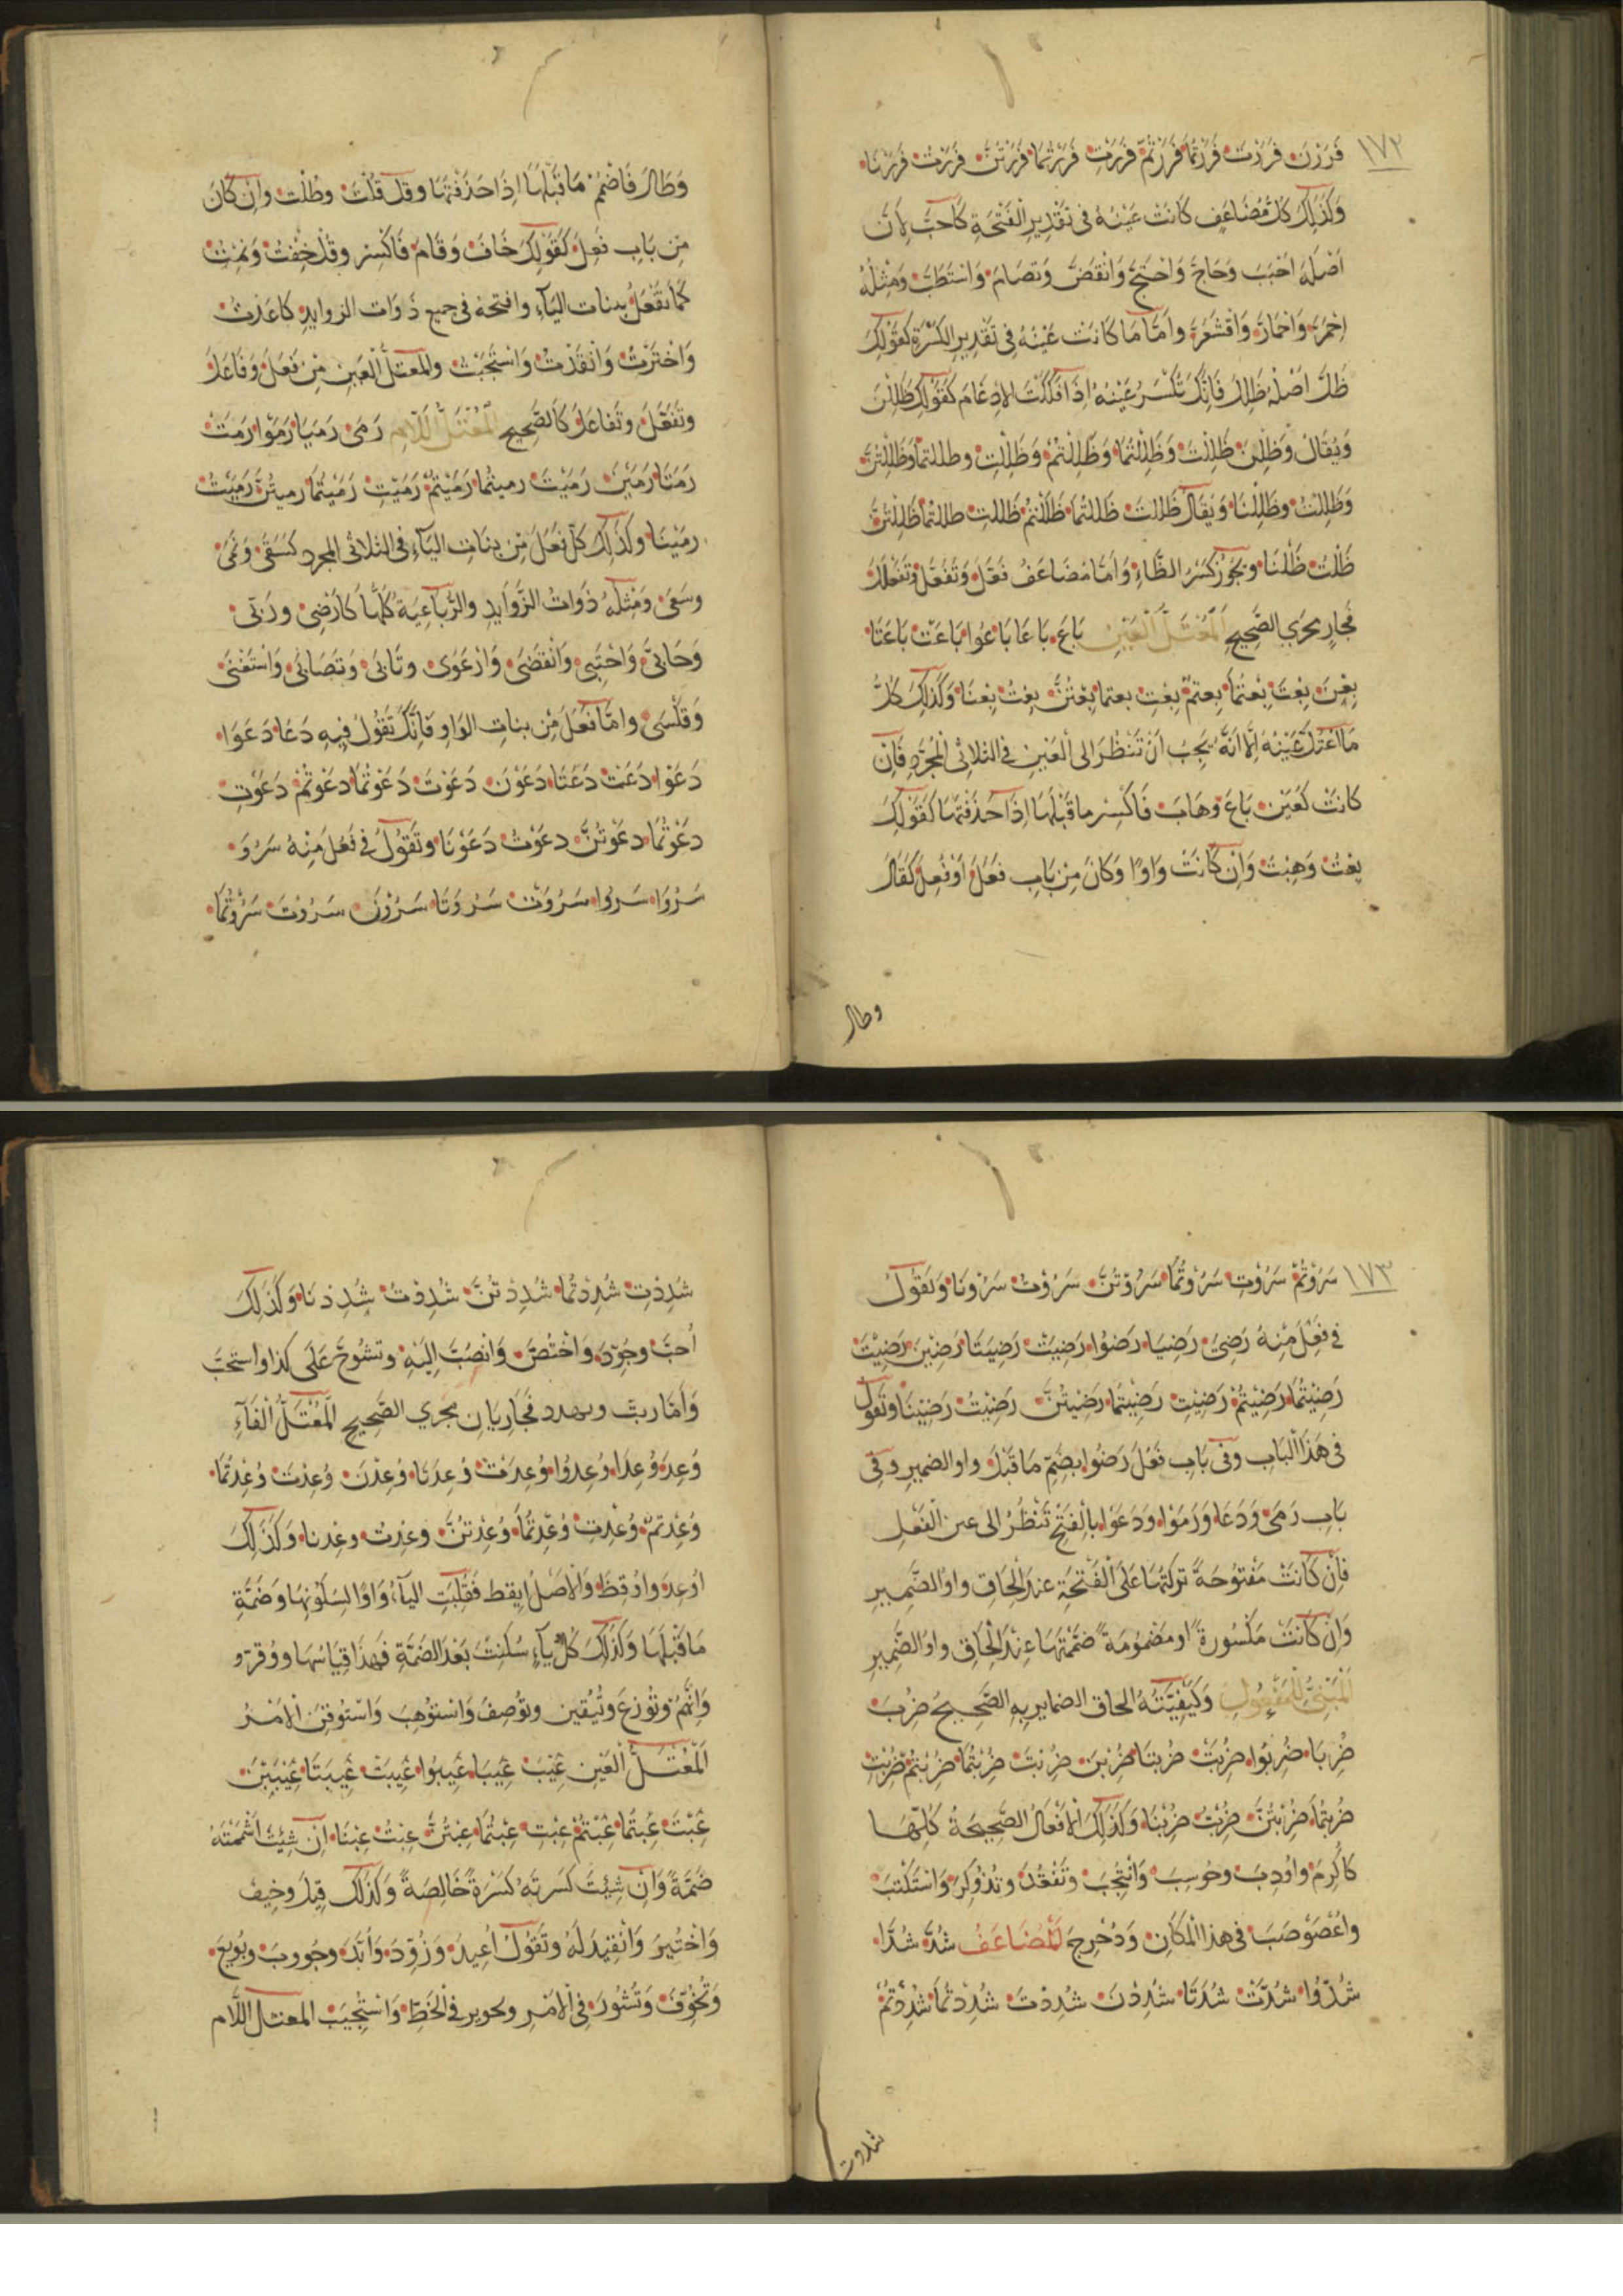 ١٧٢
فَرَرْنَ فَرَرْتَ فَرَرْتُمَا فَرَرْتُمْ فَرَرْتِ فَرَرْتُمَا فَرَرْتُنَّ فَرَرْتُ فَرَرْنَا
وَكَذَلِكَ كُلُّ مُضَاعَفٍ كَانَتْ عَيْنُهُ فِى تَقْدِيرِ الْفَتْحَةِ كَاَحَبَّ لِاَنَّ
اَصْلَهُ اَحْبَبَ وَحَاجَّ وَاحْتَجَّ وَانْقَضَّ وَتَصَامَّ وَاسْتَطَبَّ وَمِثْلُهُ
اِحْمَرَّ وَاحْمَارَّ وَاقْشَعَرَّ وَاَمَّا مَا كَانَتْ عَيْنُهُ فِى تَقْدِيرِ الْكَسْرَةِ كَقَوْلِكَ
ظَلَّ اَصْلُهُ ظَلِلَ فَاِنَّكَ تَكْسِرُ عَيْنَهُ اِذَا فَكَكْتَ الاِدْغَامَ كَقَوْلِكَ ظَلِلْنَ
وَيُقَالُ وَظَلِلْنَ ظَلِلْتَ وَظَلِلْتُمَا وَظَلِلْتُمْ وَظَلِلْتِ وظللتما وَظَلِلْتُنَّ
وَظَلِلْتُ وَظَلِلْنَا وَيُقَالُ ظَلْتَ ظَلْتُمَا ظَلْتُمْ ظَلْتِ ظلتما ظَلْتُنَّ
ظَلْتُ ظَلْنَا وَيَجُوزُ كَسْرُ الظَّاءِ وَاَمَّا مُضَاعَفُ فَعَّلَ وَتَفَعَّلَ وَتَفَعْلَلَ
فَجَارٍ مَجْرَي الصَّحِيحِ اَلْمُعْتَلُّ الْعَيْنِ بَاعَ بَاعَا بَاعُوا بَاعَتْ بَاعَتَا
بِعْنَ بِعْتَ بِعْتُمَا بِعْتُمْ بِعْتِ بعتما بِعْتُنَّ بِعْتُ بِعْنَا وَكَذَلِكَ كُلُّ
مَا اعْتَلَّ عَيْنُهُ اِلَّا اَنَّهُ يَجِبُ اَنْ تَنْظُرَ اِلَى الْعَيْنِ فِى الثلاثى الْمُجَرَّدِ فَاِنْ
كَانَتْ كَعَيْنِ بَاعَ وَهَابَ فَاكْسِرْ مَا قَبْلَهَا اِذَا حَذَفْتَهَا كَقَوْلِكَ
بِعْتُ وَهِبْتُ وَاِنْ كَانَتْ وَاوًا وَكَانَ مِنْ بَابِ فَعَلَ اَوْ فَعُلَ كَقَالَ
وطال
وَطَالَ فَاضْمُمْ مَا قَبْلَهَا اِذَا حَذَفْتَهَا وَقُلْ قُلْتُ وَطُلْتُ وَاِنْ كَانَ
مِنْ بَابِ فَعِلَ كَقَوْلِكَ خَافَ وَنَامَ فَاكْسِرْ وَقُلْ خِفْتُ وَنِمْتُ
كَمَا تَفْعَلُ ببنات اليَآءِ وافتحه فى جميع ذَوَات الزوايدِ كَاَعَذْتُ
وَاخْتَرْتُ وَانْقَدْتُ وَاسْتَجَبْتُ وَالْمُعْتَلُّ الْعَيْنِ مِنْ فَعَّلَ وَفَاعَلَ
وَتَفَعَّلَ وَتَفَاعَلَ كَالصَّحِيحِ اَلْمُعْتَلُّ الَّلامِ رَمَى رَمَيَا رَمَوْا رَمَتْ
رَمَتَا رَمَيْنَ رَمَيْتَ رميتما رَمَيْتُمْ رَمَيْتِ رَمَيْتُمَا رميتُنَّ رَمَيْتُ
رَمَيْنَا وَكَذَلِكَ كُلُّ فَعَلَ مِنْ بنَاتِ اليَآءِ فى الثلاثى المجرد كَسَقَى وَنَمَى
وَسَعَى وَمِثْلُهُ ذَوَاتُ الزَّوَايدِ والرُّبَاعِيَّةِ كُلّهَا كَاَرْضَى وَرَبَّى
وَحَابَى وَاحْتَبَى وَانْقَضَى وَارْعَوَى وَتَاَبَّى وَتَصَابَى وَاسْتَغْنَى
وَقَلْسَى وَاَمَّا فَعَلَ مِنْ بنات الوَاوِ فَاِنَّكَ تَقُولُ فِيهِ دَعَا دَعَوَا
دَعَوْا دَعَتْ دَعَتَا دَعَوْنَ دَعَوْتَ دَعَوْتُمَا دَعَوْتُمْ دَعَوْتِ
دَعَوْتُمَا دَعَوْتُنَّ دَعَوْتُ دَعَوْنَا وَتَقُولُ فِى فَعُلَ مِنْهُ سَرُوَ
سَرُوَا سَرُوا سَرُوَتْ سَرُوَتَا سَرُوْنَ سَرُوْتَ سَرُوْتُمَا
١٧٣
سَرُوْتُمْ سَرُوْتِ سَرُوْتُمَا سَرُوْتُنَّ سَرُوْتُ سَرُوْنَا وَتَقُولُ
فِى فَعِلَ مِنْهُ رَضِىَ رَضِيَا رَضُوا رَضِيَتْ رَضِيَتَا رَضِينَ رَضِيْتَ
رَضِيْتُمَا رَضِيْتُمْ رَضِيْتِ رَضِيْتُمَا رَضِيْتُنَّ رَضِيْتُ رَضِيْنَا وَتَقُولُ
فِى هَذَا الْبَابِ وَفِى بَابِ فَعُلَ رَضُوا بِضَمِّ مَا قَبْلَ واو الضمير وفِى
بَابِ رَمَى وَدَعَا وَرَمَوْا وَدَعَوْا بِالْفَتْحِ تَنْظُرُ الى عين الْفِعْلِ
فَاِنْ كَانَتْ مَفْتُوحَةً تركتها عَلَى الْفَتْحَةِ عند اِلْحَاقِ واو الضَّمِيرِ
وَاِنْ كَانَتْ مَكْسُورةً او مَضْمُومَةً ضَمَمْتَهَا عِنْدَ اِلْحَاقِ واو الضَّمِيرِ
اَلْمَبْنِىُّ لِلْمَفْعُولِ وَكَيْفِيَّتُهُ الحاق الضماير بِهِ الصَّحِيحُ ضُرِبَ
ضُرِبَا ضُرِبُوا ضُرِبَتْ ضُرِبَتَا ضُرِبْنَ ضُرِبْتَ ضُرِبْتُمَا ضُرِبْتُمْ ضُرِبْتِ
ضُرِبْتُمَا ضُرِبْتُنَّ ضُرِبْتُ ضُرِبْنَا وَكَذَلِكَ الْاَفْعَالُ الصَّحِيحَةُ كُلُّهَا
كَاُكْرِمَ وَاُدِبَ وَحُوسِبَ وَانْتُجِبَ وَتُفُقِّدَ وَتُذُوكِرَ وَاسْتُكْتِبَ
وَاعْصَوْصَبَا فى هذا الْمَكَانِ وَدُحْرِجَ اَلْمُضَاعَفُ شُدَّ شُدَّا
شُدُّوا شُدَّتْ شُدَّتَا شُدِدْنَ شُدِدْتَ شُدِدْتُمَا شُدِدْتُمْ
شددت
شُدِدْتِ شُدِدْتُمَا شُدِدْتُنَّ شُدِدْتُ شُدِدْنَا وَكَذَلِكَ
اُحِبَّ وَاخْتُصَّ وَانْصُبَّ اِلَيْهِ وتُشُوحَّ عَلَى كذا واستحبّ
وَاَمَّا ربّب فَجَارِيَانِ مَجْرَي الصَّحِيحِ اَلْمُعْتَلُّ الْفَآءِ
وُعِدَ وُعِدَا وُعِدُوا وُعِدَتْ وُعِدَتَا وُعِدْنَ وُعِدْتَ وُعِدْتُمَا
وُعِدْتُمْ وُعِدْتِ وُعِدْتُمَا وُعِدْتُنَّ وعِدْتُ وعِدْنا وَكَذَلِكَ
اُوعِدَ وَاُوقِظَ وَالاَصْلُ اُيقظ فَقُلِبَتِ اليَآءُ وَاوًا لِسُكُونِهَا وَضَمَّةِ
مَا قَبْلَهَا وَكَذَلِكَ كُلُّ يَآءٍ سَكَنَتْ بَعْدَ الضَّمَّةِ فَهذَا قِيَاسُهَا
وَتُوُزِّعَ وَتُيُقِّنَ وَتُوُصِّفَ وَاسْتُوْهِبَ وَاسْتُوقِنَ الاَمْرُ
اَلْمُعْتَلُّ الْعَيْنِ عِيْبَ عِيْبَا عِيْبُوا عِيبَتْ عِيبَتَا
عِبْتَ عِبْتُمَا عِبْتُمْ عِبْتِ عِبْتُمَا عِبْتُنَّ عِبْتُ عِبْنَا اِنْ شِئْتَ اَشْمَمْتَهُ
ضَمَّةً وَاِنْ شِئْتَ كسرتَهُ كَسْرَةً خَالِصَةً وَكَذَلِكَ قِيلَ وَخِيفَ
وَاخْتِيرَ وَانْقِيدَ لَهُ وَتَقُولُ اُعِيدَ وَزُوِّدَ وَاُيِّدَ وَجُووِبَ وَبُويِعَ
وَتُخُوِّفَ وَتُشُووِرَ فِى الْاَمْرِ وتحوير فى الْخَطِّ وَاسْتُجِيبَ المعتل اللَّام